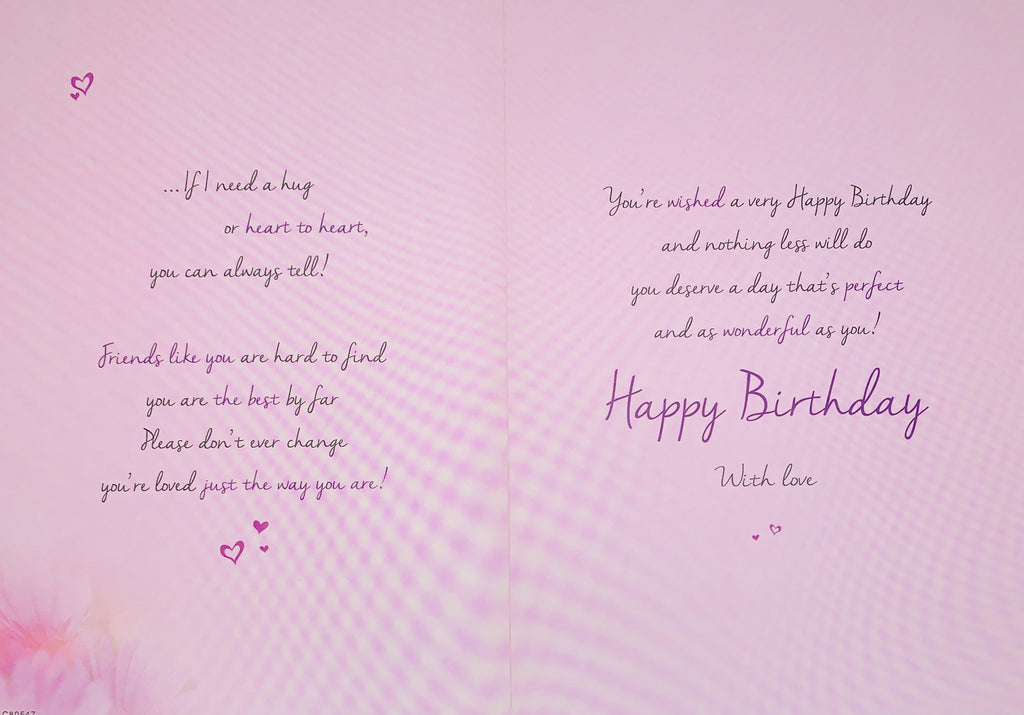 ...If I need a hug
or heart to heart,
you can always tell!
Friends like you are hard to find
you are the best by far
Please don't ever change
you're loved just the way you are!
You're wished a very Happy Birthday
and nothing less will do
you deserve a day that's perfect
and as wonderful as you!
Happy Birthday
With love